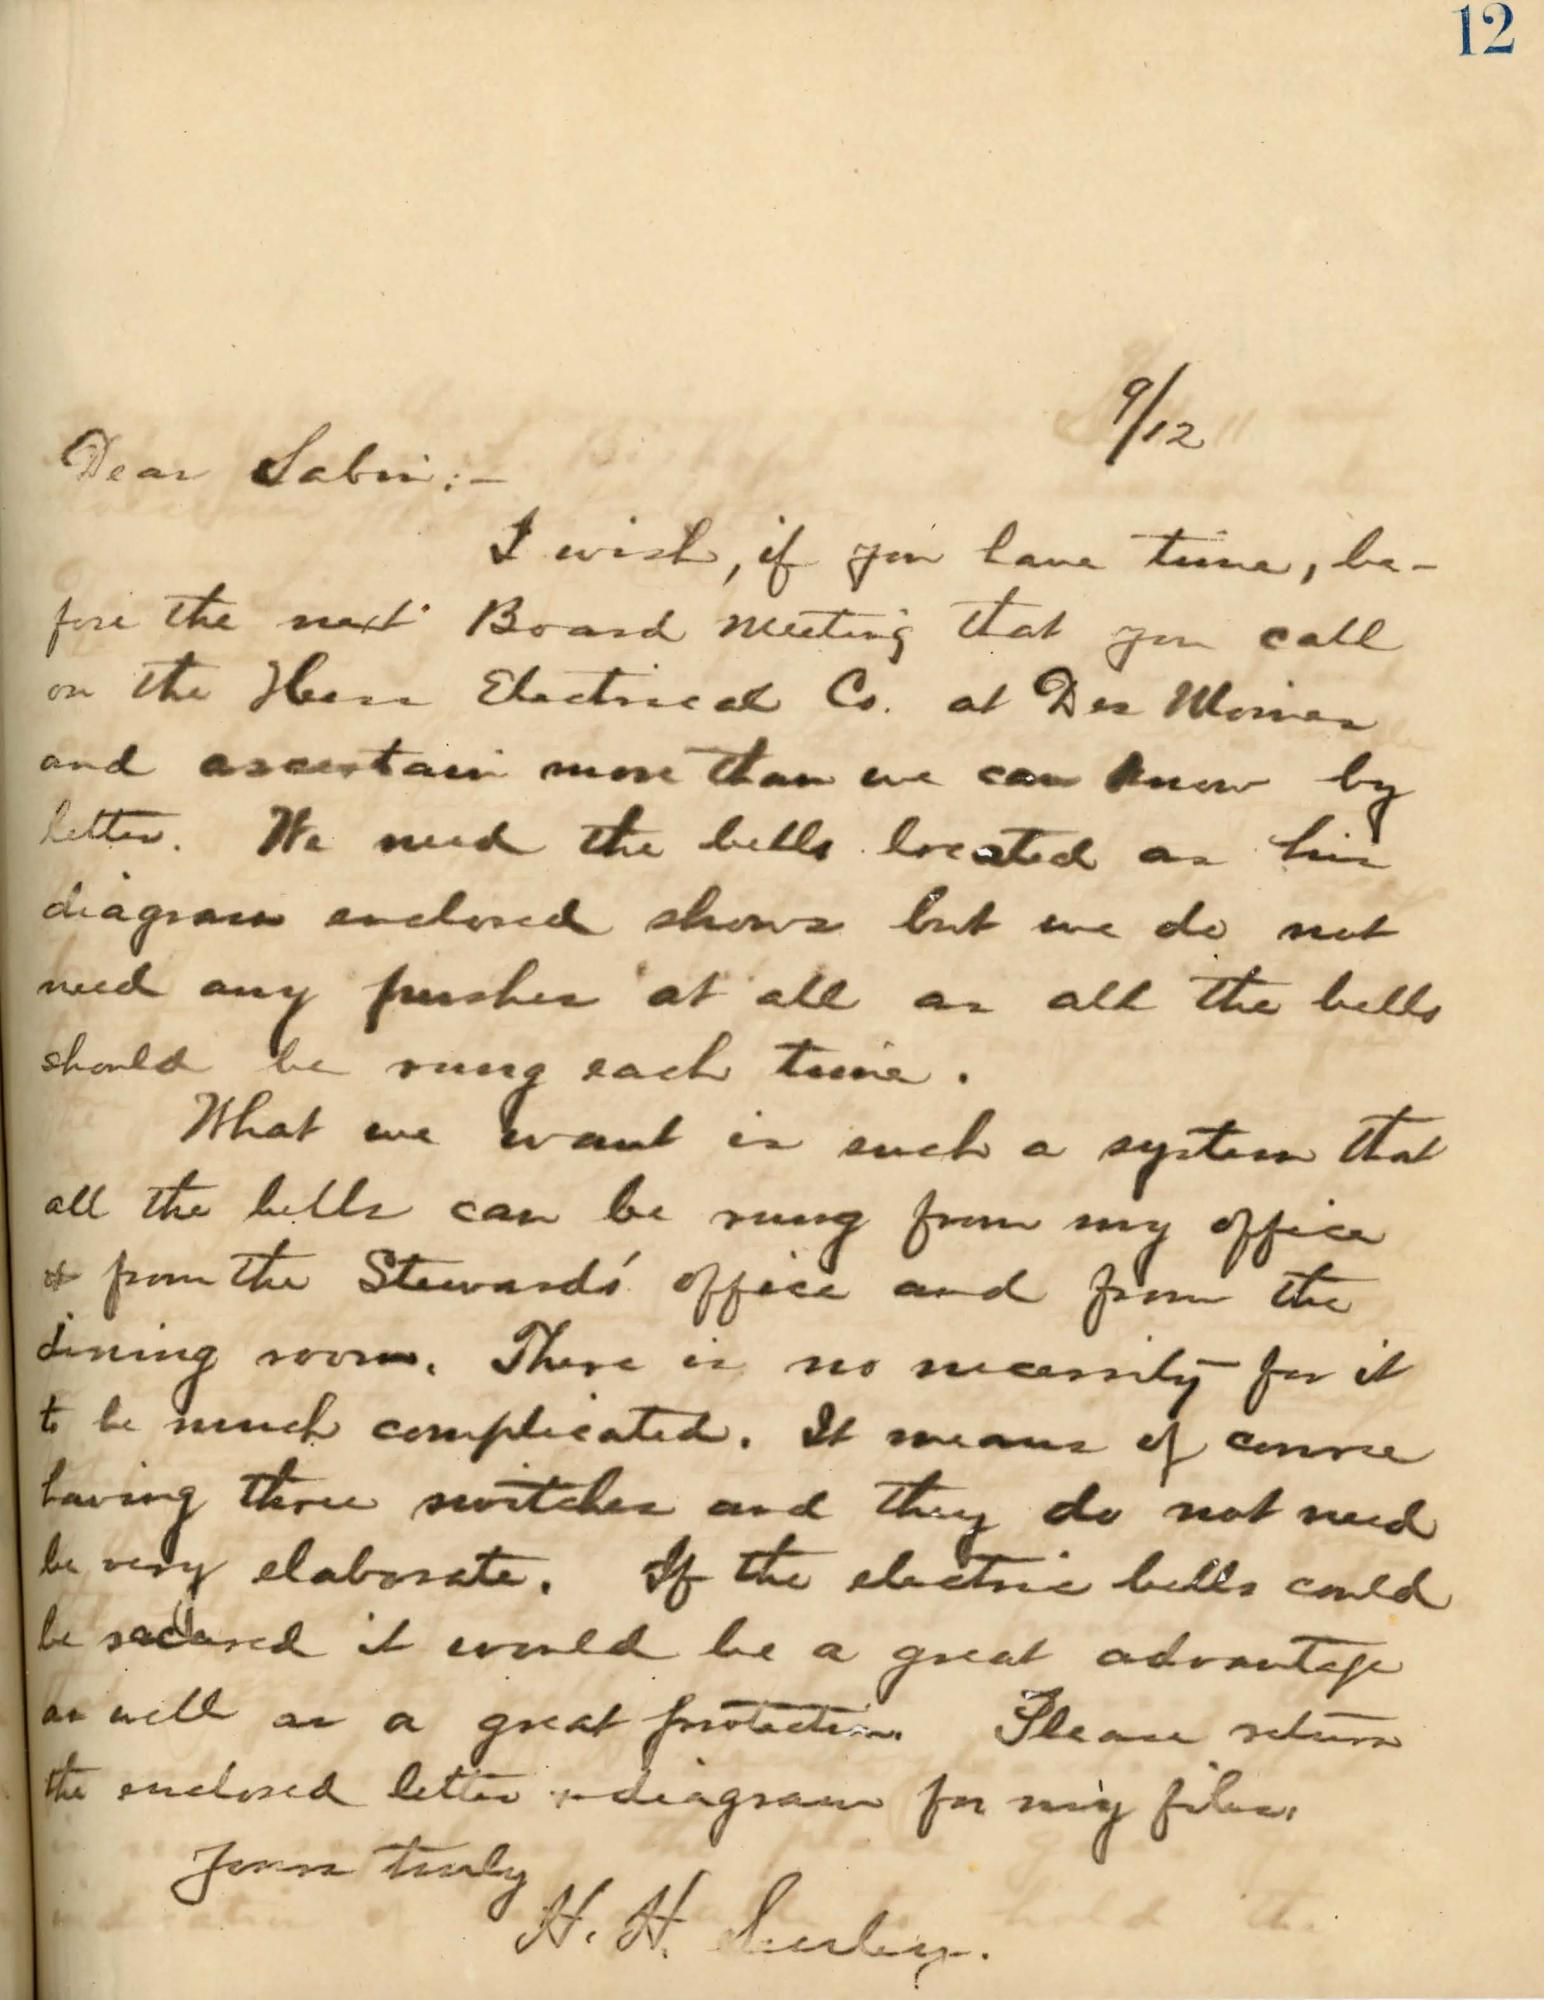 12
9/12
Dear Sabin:-
I wish, if you have time, be-
fore the next Board meeting that you call
on the Hess Electrical Co. at Des Moines
and ascertain more than we can know by
letter. We need the bells located as his
diagram enclosed shows but we do not
need any pushes at all as all the bells
should be rung each time.
What we want is such a system that
all the bells can be rung from my office
& from the Stewards' office and from the
dining room. There is no necessity for it
to be much complicated. It means of course
having three switches and they do not need
be very elaborate. If the electric bells could
be secured it would be a great advantage
as well as a great protection. Please return
the enclosed letter & diagram for my files.
Yours truly
H. H. Seerley.